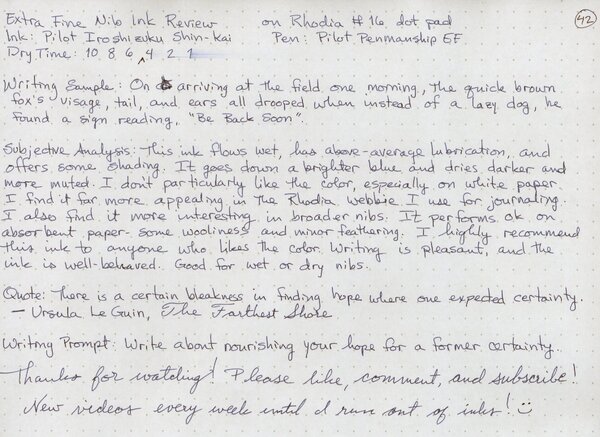 Extra Fine Nib Ink Review on Rhodia # 16 dot pad 42
Ink: Pilot Iroshizuku Shin-kai Pen: Pilot Penmanship EF
Dry Time: 10 8 6 4 2 1
Writing Sample: On arriving at the field one morning, the quick brown
fox's visage, tail, and ears all drooped when instead of a lazy dog, he
found a sign reading, "Be Back Soon".
Subjective Analysis: This ink flows wet, has above-average lubrication, and
offers some shading. It goes down a brighter blue and dries darker and
more muted. I don't particularly like the color, especially on white paper.
I find it far more appealing in the Rhodia webbie I use for journaling.
I also find it more interesting in broader nibs. It performs ok on
absorbent paper- some wooliness and minor feathering. I highly recommend
this ink to anyone who likes the color. Writing is pleasant, and the
ink is well-behaved. Good for wet or dry nibs.
Quote: There is a certain bleakness in finding hope where one expected certainty.
- Ursula Le Guin, The Farthest Shore
Writing Prompt: Write about nourishing your hope for a former certainty.
Thanks for watching! Please like, comment, and subscribe!
New videos every week until I run out of inks! :)